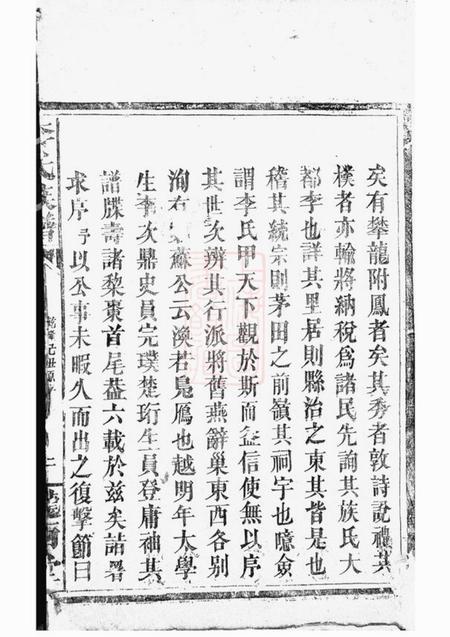 矣有攀龍附鳳者矣其秀者敦詩說禮其
樸者亦輸將納稅為諸民先詢其族氏大
都李也詳其里居則縣治之東其皆是也
稽其統宗則茅田之前嶺其祠宇也噫僉
謂李氏甲天下觀於斯而益信使無以序
其世次辨其行派將舊燕辭巢東西各別
洵有蘇公云渙若鳧鴈也越明年大學
生李次鼎史員完璞楚珩生員登庸袖其
譜牒壽諸黎棗首尾葢六載於兹矣詣署
求序予以公事未暇久而出之復擊節曰
李氏族譜